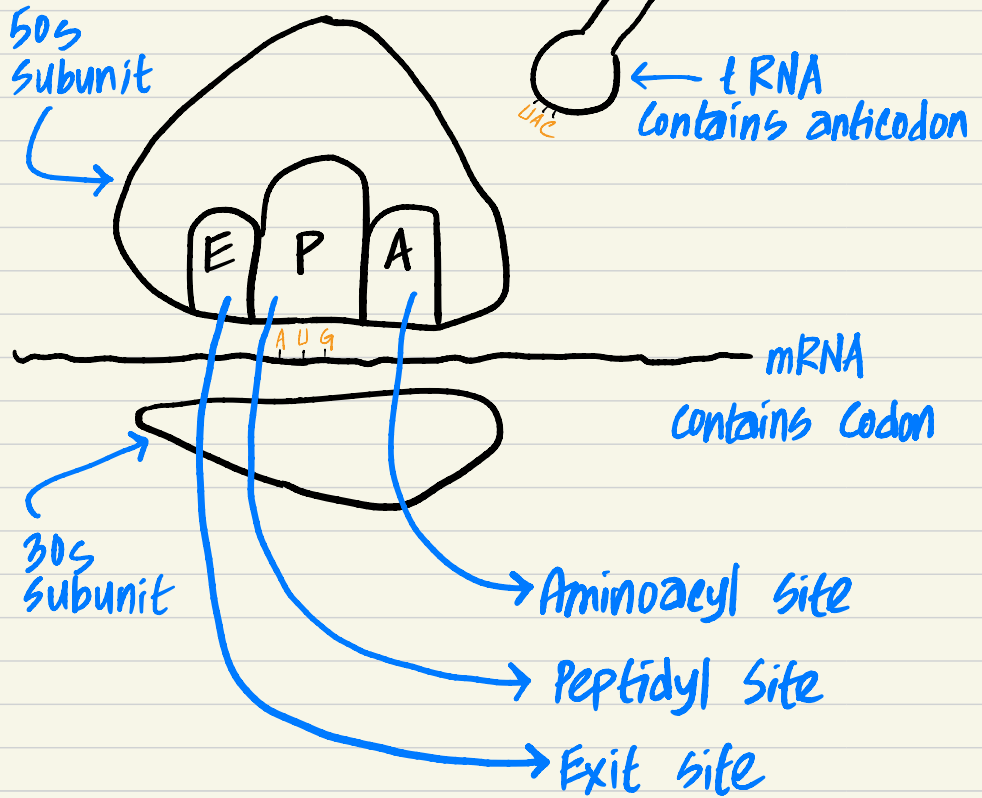 50s
subunit
tRNA
contains anticodon
UAC
E P A
A U G
mRNA
contains codon
30s
subunit
Aminoacyl site
Peptidyl site
Exit site